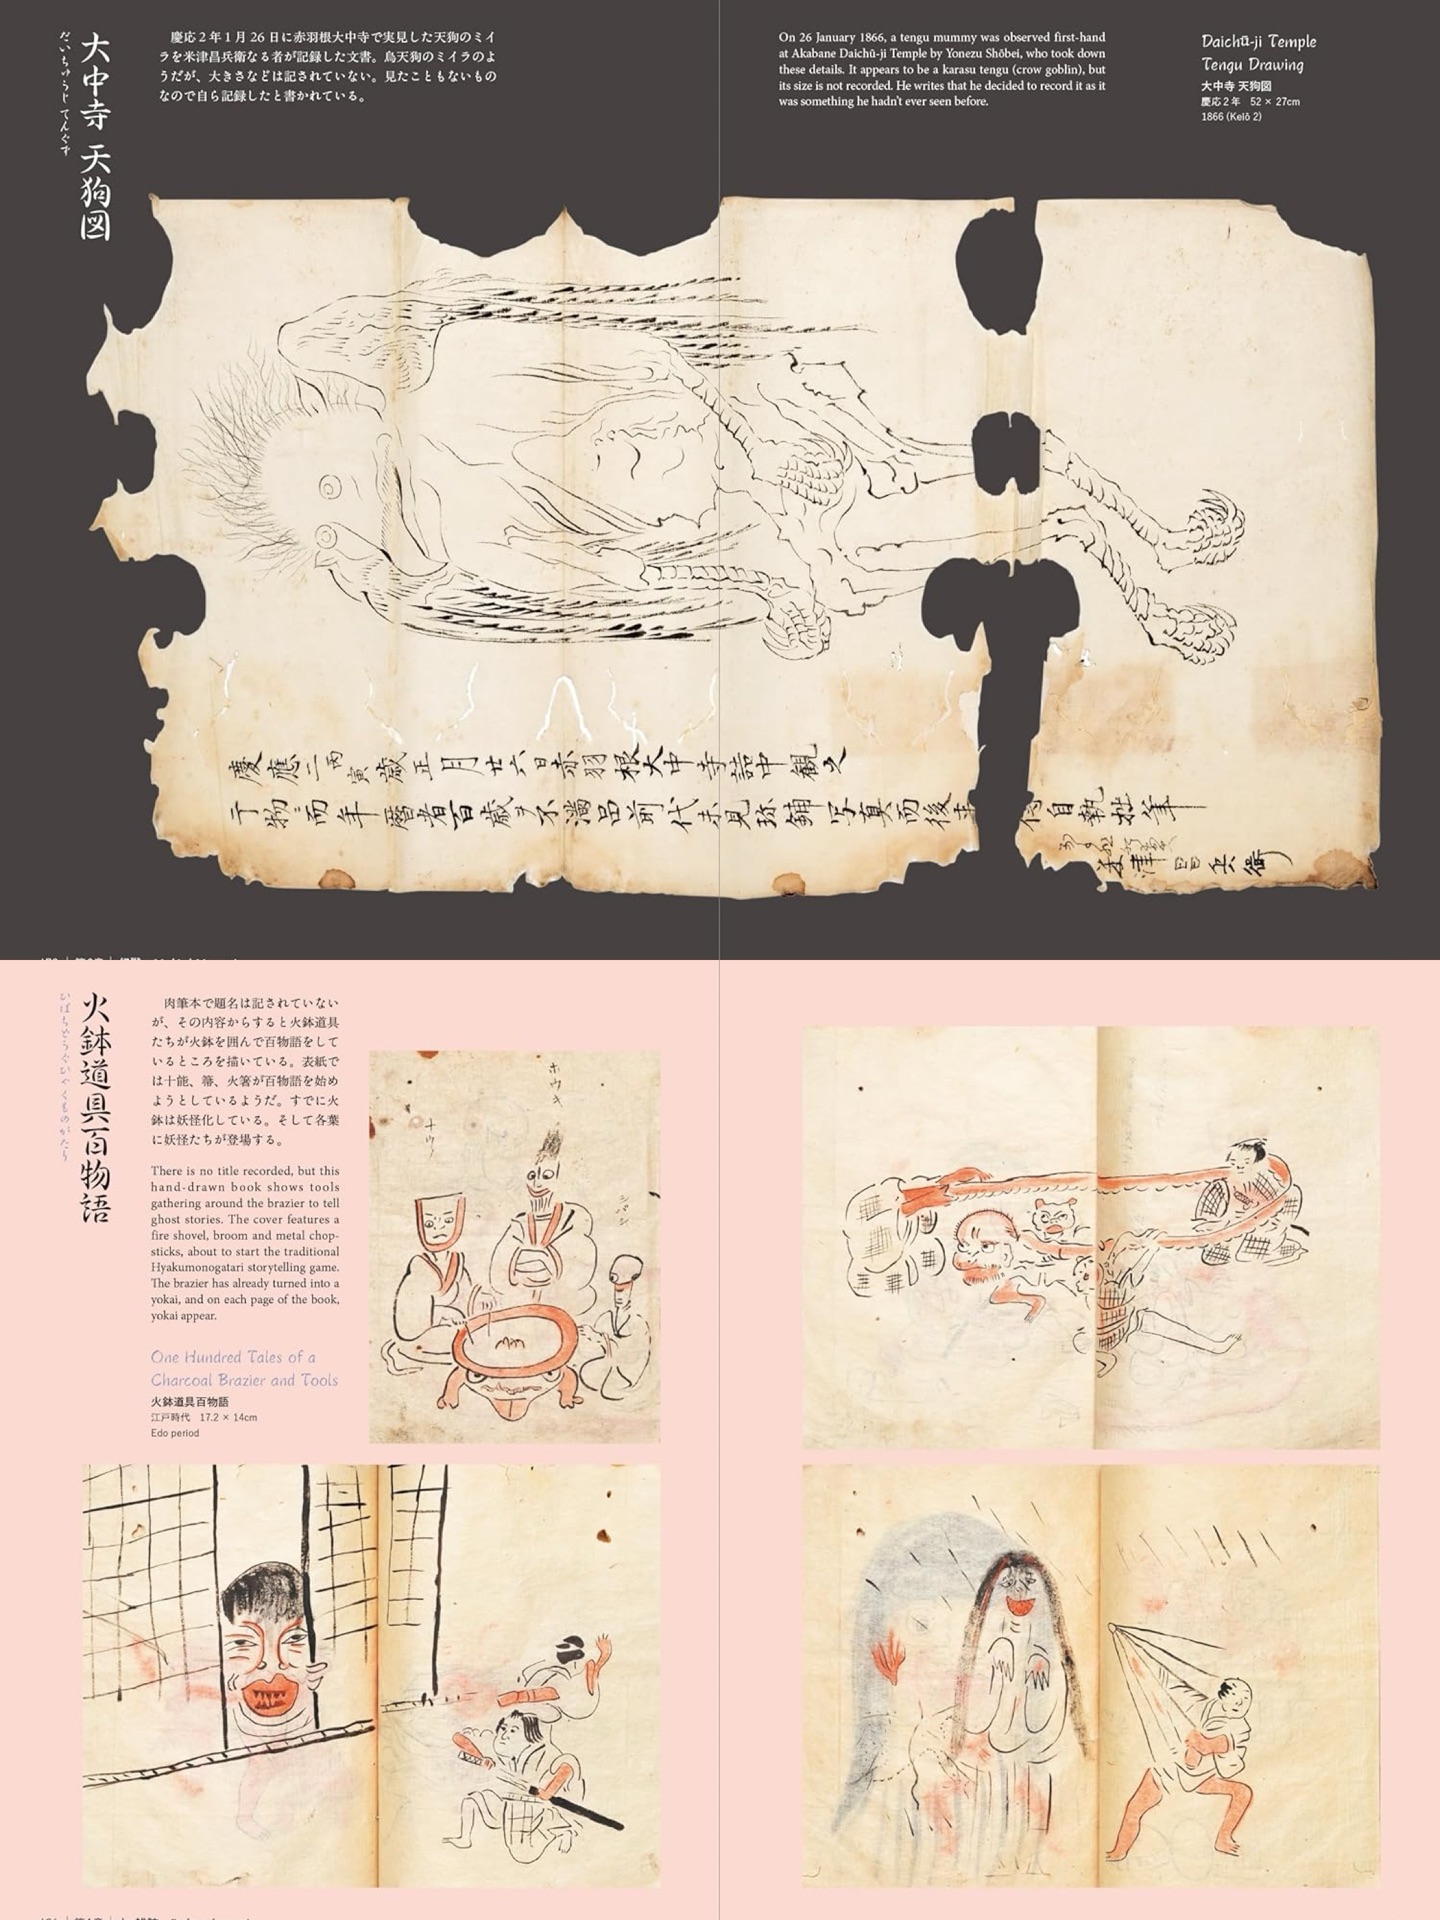 大中寺 天狗図
だいちゅうじ てんぐず
慶応2年1月26日に赤羽根大中寺で実見した天狗のミイ
ラを米津昌兵衛なる者が記録した文書。烏天狗のミイラのよ
うだが、大きさなどは記されていない。見たこともないもの
なので自ら記録したと書かれている。
On 26 January 1866, a tengu mummy was observed first-hand
at Akabane Daichū-ji Temple by Yonezu Shōbei, who took down
these details. It appears to be a karasu tengu (crow goblin), but
its size is not recorded. He writes that he decided to record it as it
was something he hadn't ever seen before.
Daichū-ji Temple
Tengu Drawing
大中寺 天狗図
慶応2年 52 × 27cm
1866 (Keiō 2)
慶應二丙寅歳正月廿六日赤羽根大中寺
米津昌兵衛
火鉢道具百物語
ひばちどうぐひゃくものがたり
肉筆本で題名は記されていない
が、その内容からすると火鉢道具
たちが火鉢を囲んで百物語をして
いるところを描いている。表紙で
は十能、箒、火箸が百物語を始め
ようとしているようだ。すでに火
鉢は妖怪化している。そして各葉
に妖怪たちが登場する。
There is no title recorded, but this
hand-drawn book shows tools
gathering around the brazier to tell
ghost stories. The cover features a
fire shovel, broom and metal chop-
sticks, about to start the traditional
Hyakumonogatari storytelling game.
The brazier has already turned into a
yokai, and on each page of the book,
yokai appear.
One Hundred Tales of a
Charcoal Brazier and Tools
火鉢道具百物語
江戸時代 17.2 × 14cm
Edo period
ホウキ